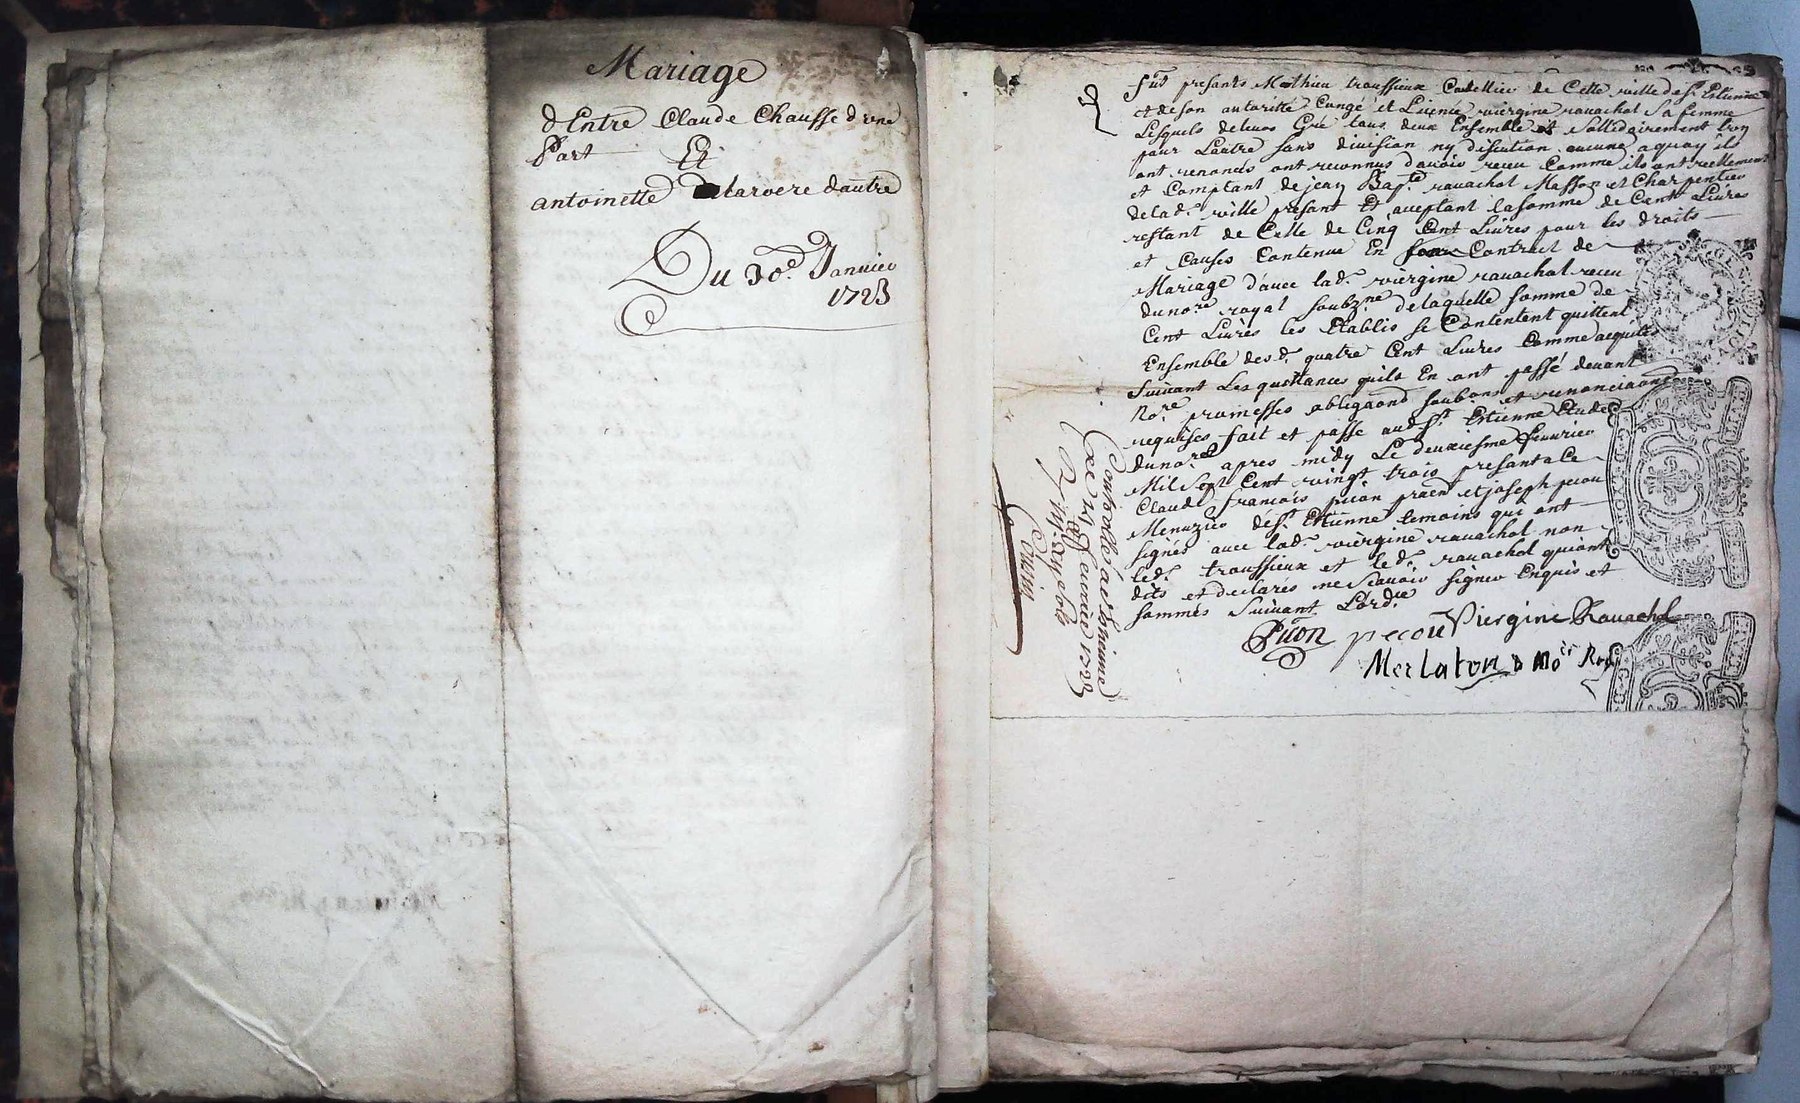 Mariage
d'Entre Claude Chausse d'une
Part Et
antoinette Delarvere d'autre
Du 30.e Janvier
1723
Fut presants Mathieu trouffieux Coutellier de Cette ville de St. Estienne
et de son autorité Congé et Licence viergine ravachol Sa femme
Lesquels de leurs Gré tous deux Ensemble et Sollidairement L'un
pour Lautre Sans division ny discution aucune a quoy ils
ont renoncés ont reconnus d'avoir receu Comme ils ont reellement
et Comptant de jean Bapte. ravachol Masson et Charpentier
de lad. ville présant Et aceptant la somme de Cent Livres
restant de Celle de Cinq Cent Livres pour les droits
et Causes Contenue En Contract de
Mariage d'avec lad. viergine ravachol receu
du nore. royal soubzne. de laquelle somme de
Cent Livres les Etablis se Contentent quittent
Ensemble des d. quatre Cent Livres Comme acquités
Suivant Les quittances quils En ont passé devant
Nore. promesses obligaons soubons et renonciaons
requises fait et passé aud St. Estienne Etude
du nore. apres midy Le deuxiesme fevrier
Mil Sept Cent vingt trois presants a Ce
Claude françois picon praen et joseph picou
Menuzier de St. Etienne temoins qui ont
signés avec lad. viergine ravachol non
led. trouffieux et led. ravachol qui ont
dits et declarés ne Scavoir signer Enquis et
sommés Suivant Lord.ce
Picon pecou Viergine Ravachol
Merlaton No.re Roy.
Controllé a St. Etienne
Ce fevrier 1723